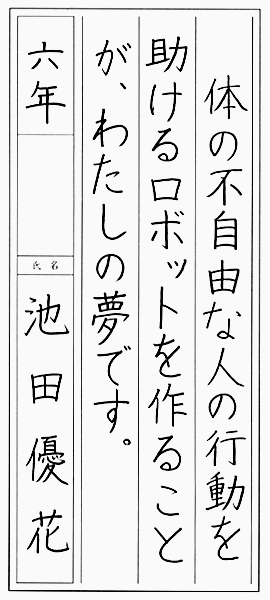 体の不自由な人の行動を
助けるロボットを作ること
が、わたしの夢です。
六年
氏名
池田優花